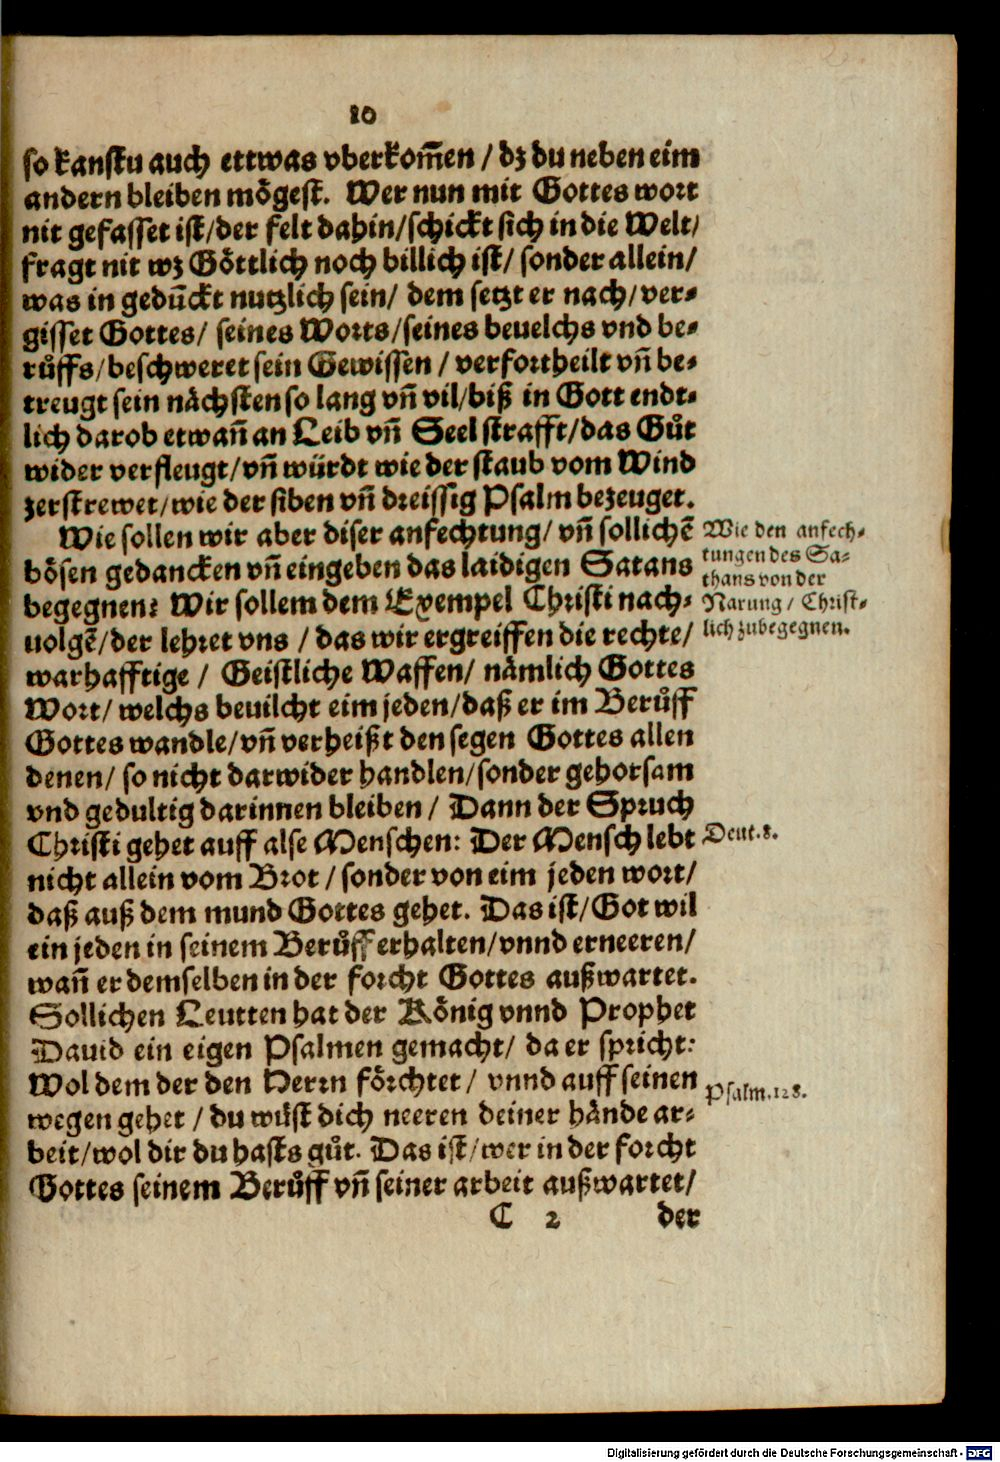 10
so kanstu auch ettwas vberkom̄en / dz du neben eim
andern bleiben mögest. Wer nun mit Gottes wort
nit gefasset ist/der felt dahin/schickt sich in die Welt/
fragt nit wz Göttlich noch billich ist/ sonder allein/
was in gedūckt nutzlich sein/ dem setzt er nach/ver-
gisset Gottes/ seines Worts/seines beuelchs vnd be-
růffs/beschweret sein Gewissen / verfortheilt vn̄ be-
treugt sein nächsten so lang vn̄ vil/biß in Gott endt-
lich darob etwan̄ an Leib vn̄ Seel strafft/das Gůt
wider verfleugt/vn̄ würdt wie der staub vom Wind
zerstrewet/wie der siben vn̄ dreissig Psalm bezeuget.
Wie sollen wir aber diser anfechtung/ vn̄ sollichē
bösen gedancken vn̄ eingeben das laidigen Satans
begegnen? Wir sollem dem Exempel Christi nach-
uolgē/der lehret vns / das wir ergreiffen die rechte/
warhafftige / Geistliche Waffen/ nämlich Gottes
Wort/ welchs beuilcht eim jeden/daß er im Berůff
Gottes wandle/vn̄ verheißt den segen Gottes allen
denen/ so nicht darwider handlen/sonder gehorsam
vnd gedultig darinnen bleiben / Dann der Spruch
Christi gehet auff alse Menschen: Der Mensch lebt
nicht allein vom Brot / sonder von eim jeden wort/
daß auß dem mund Gottes gehet. Das ist/Got wil
ein jeden in seinem Berůff erhalten/vnnd erneeren/
wan̄ er demselben in der forcht Gottes außwartet.
Sollichen Leutten hat der König vnnd Prophet
Dauid ein eigen Psalmen gemacht/ da er spricht:
Wol dem der den Herrn förchtet / vnnd auff seinen
wegen gehet / du würst dich neeren deiner hände ar-
beit/wol dir du hasts gůt. Das ist/wer in der forcht
Gottes seinem Berůff vn̄ seiner arbeit außwartet/
C 2 der
Wie den anfech-
tungen des Sa-
thans von der
Narung / Christ-
lich zubegegnen.
Deut. 8.
Psalm. 128.
Digitalisierung gefördert durch die Deutsche Forschungsgemeinschaft - DFG